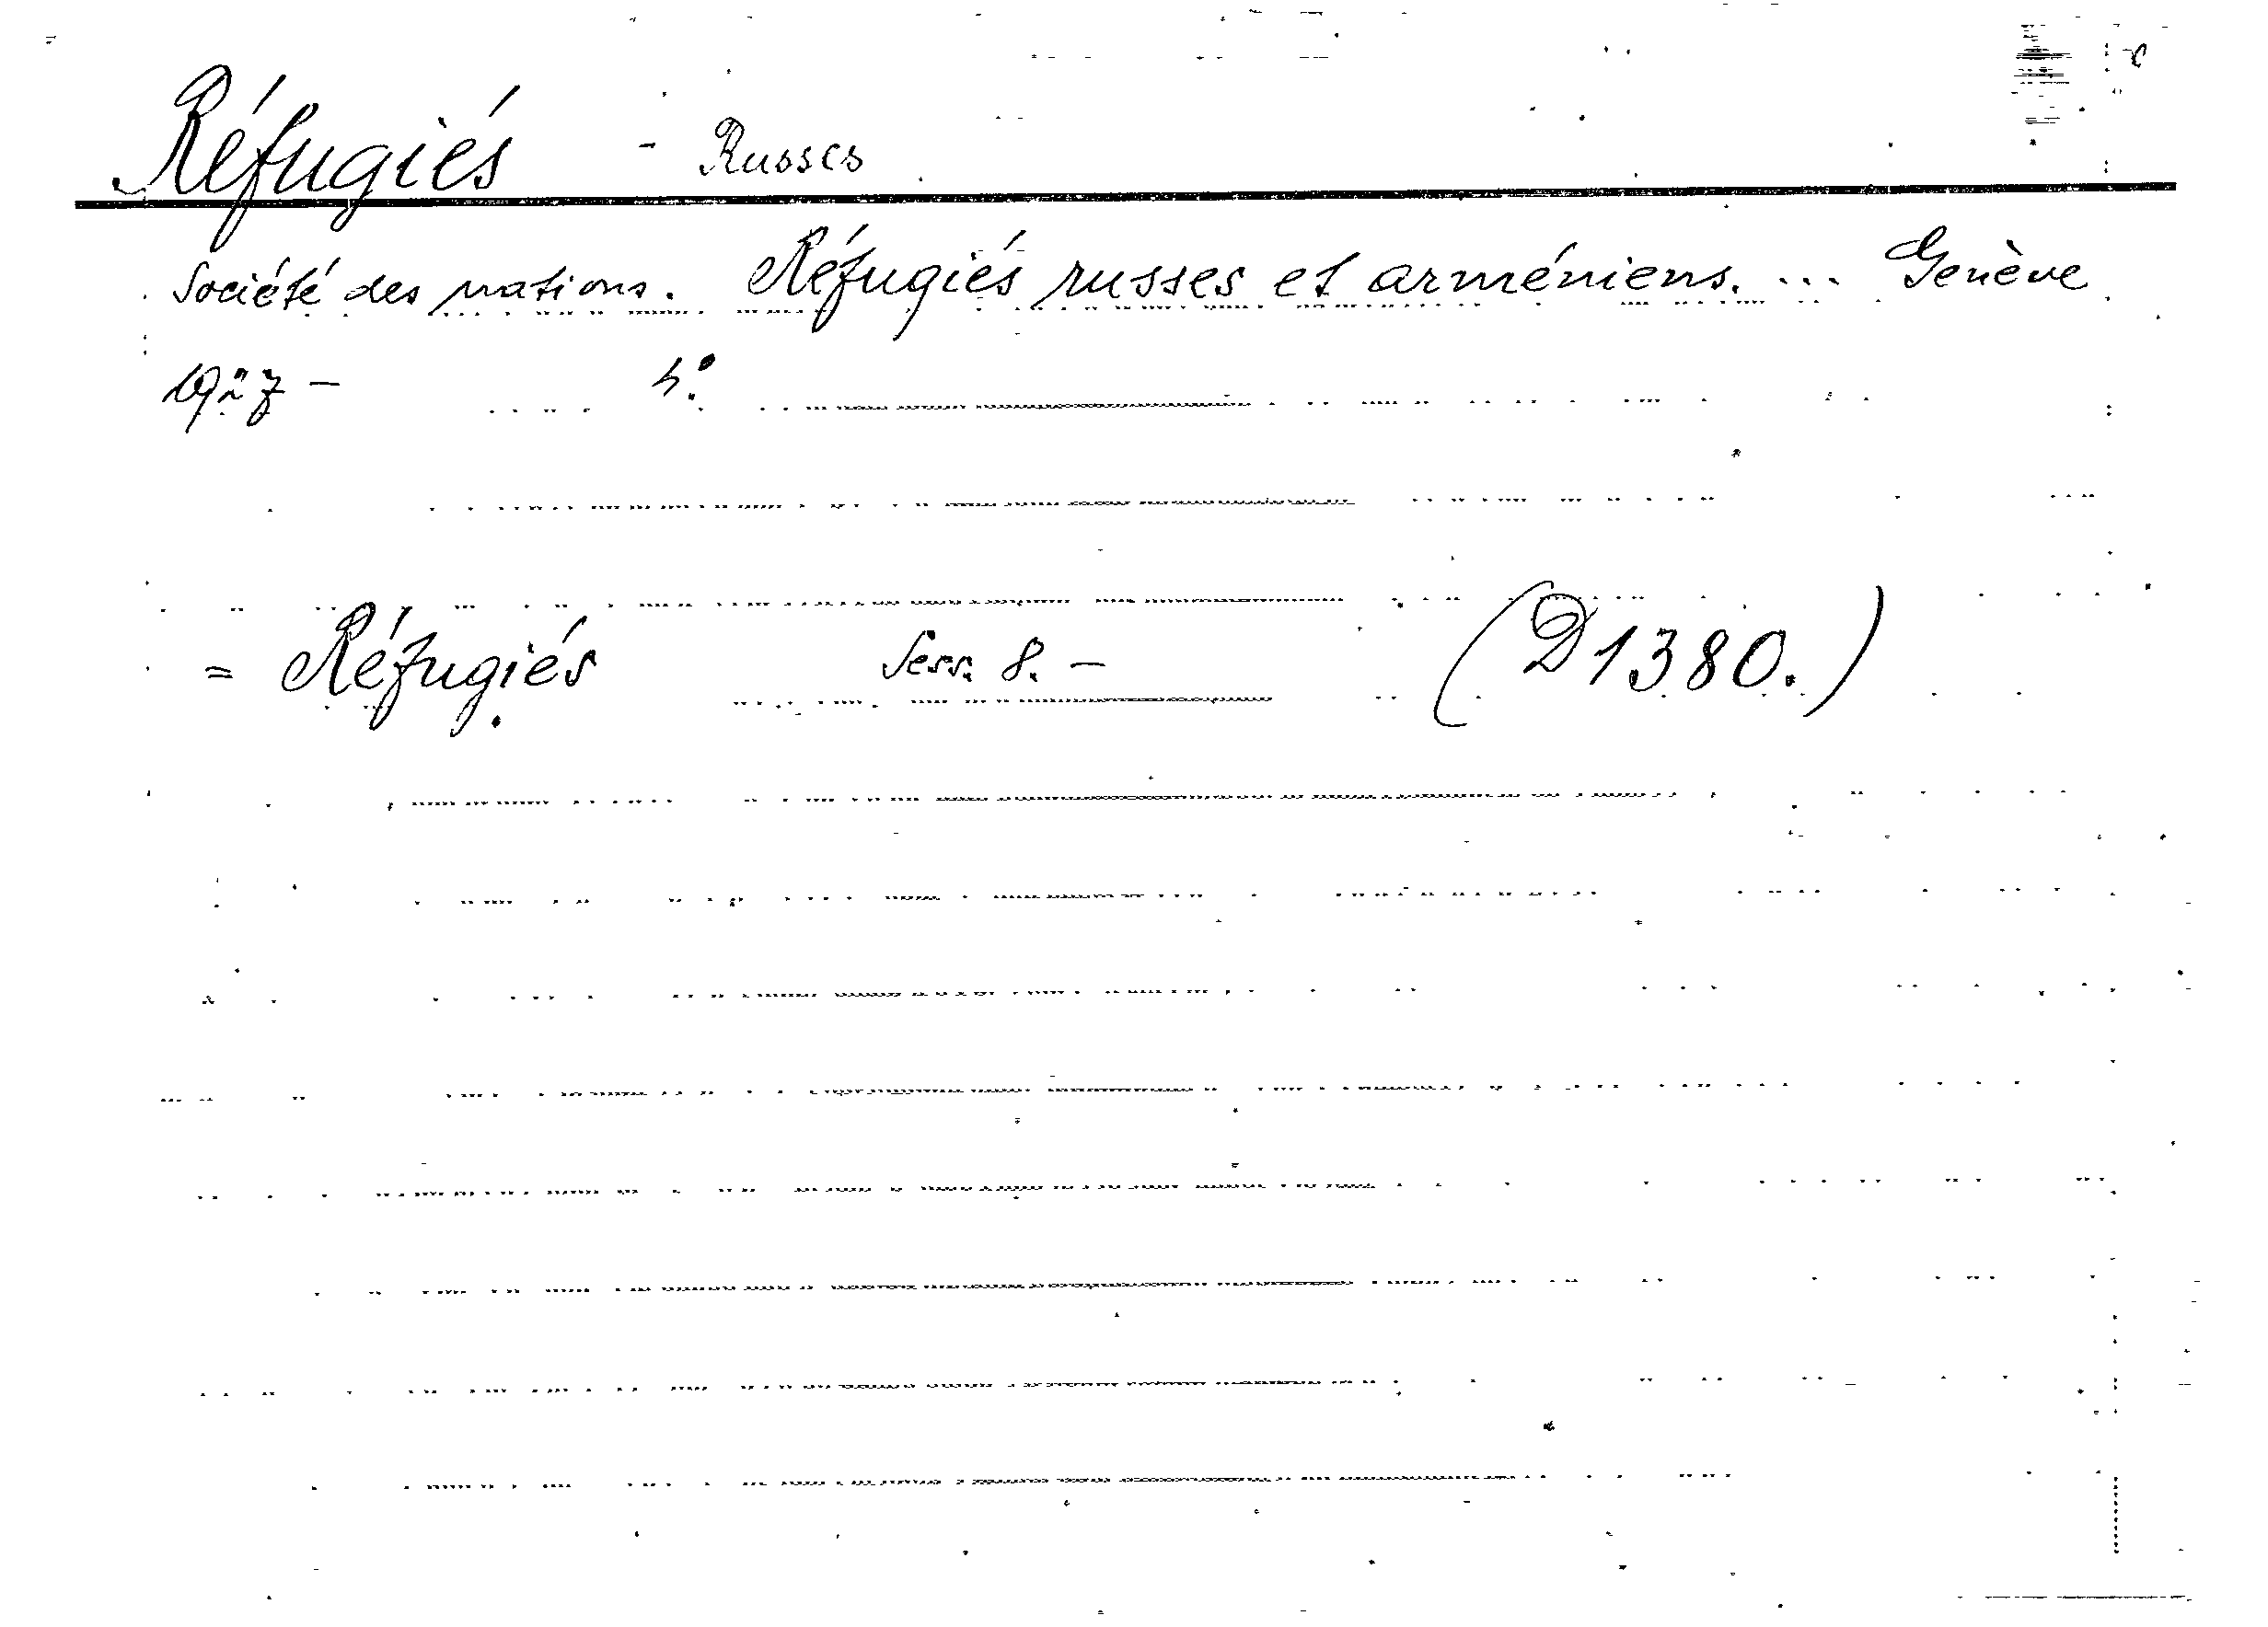 Réfugiés - Russes
Société des nations. Réfugiés russes et arméniens. ... Genève
1927 - 4°.
= Réfugiés Sess. 8. - (D1380.)